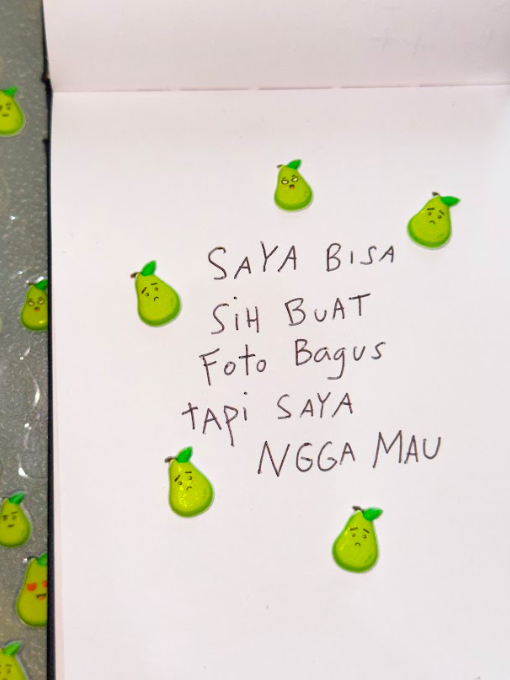 SAYA BISA
SiH BUAT
Foto Bagus
tApi SAYA
NGGA MAU